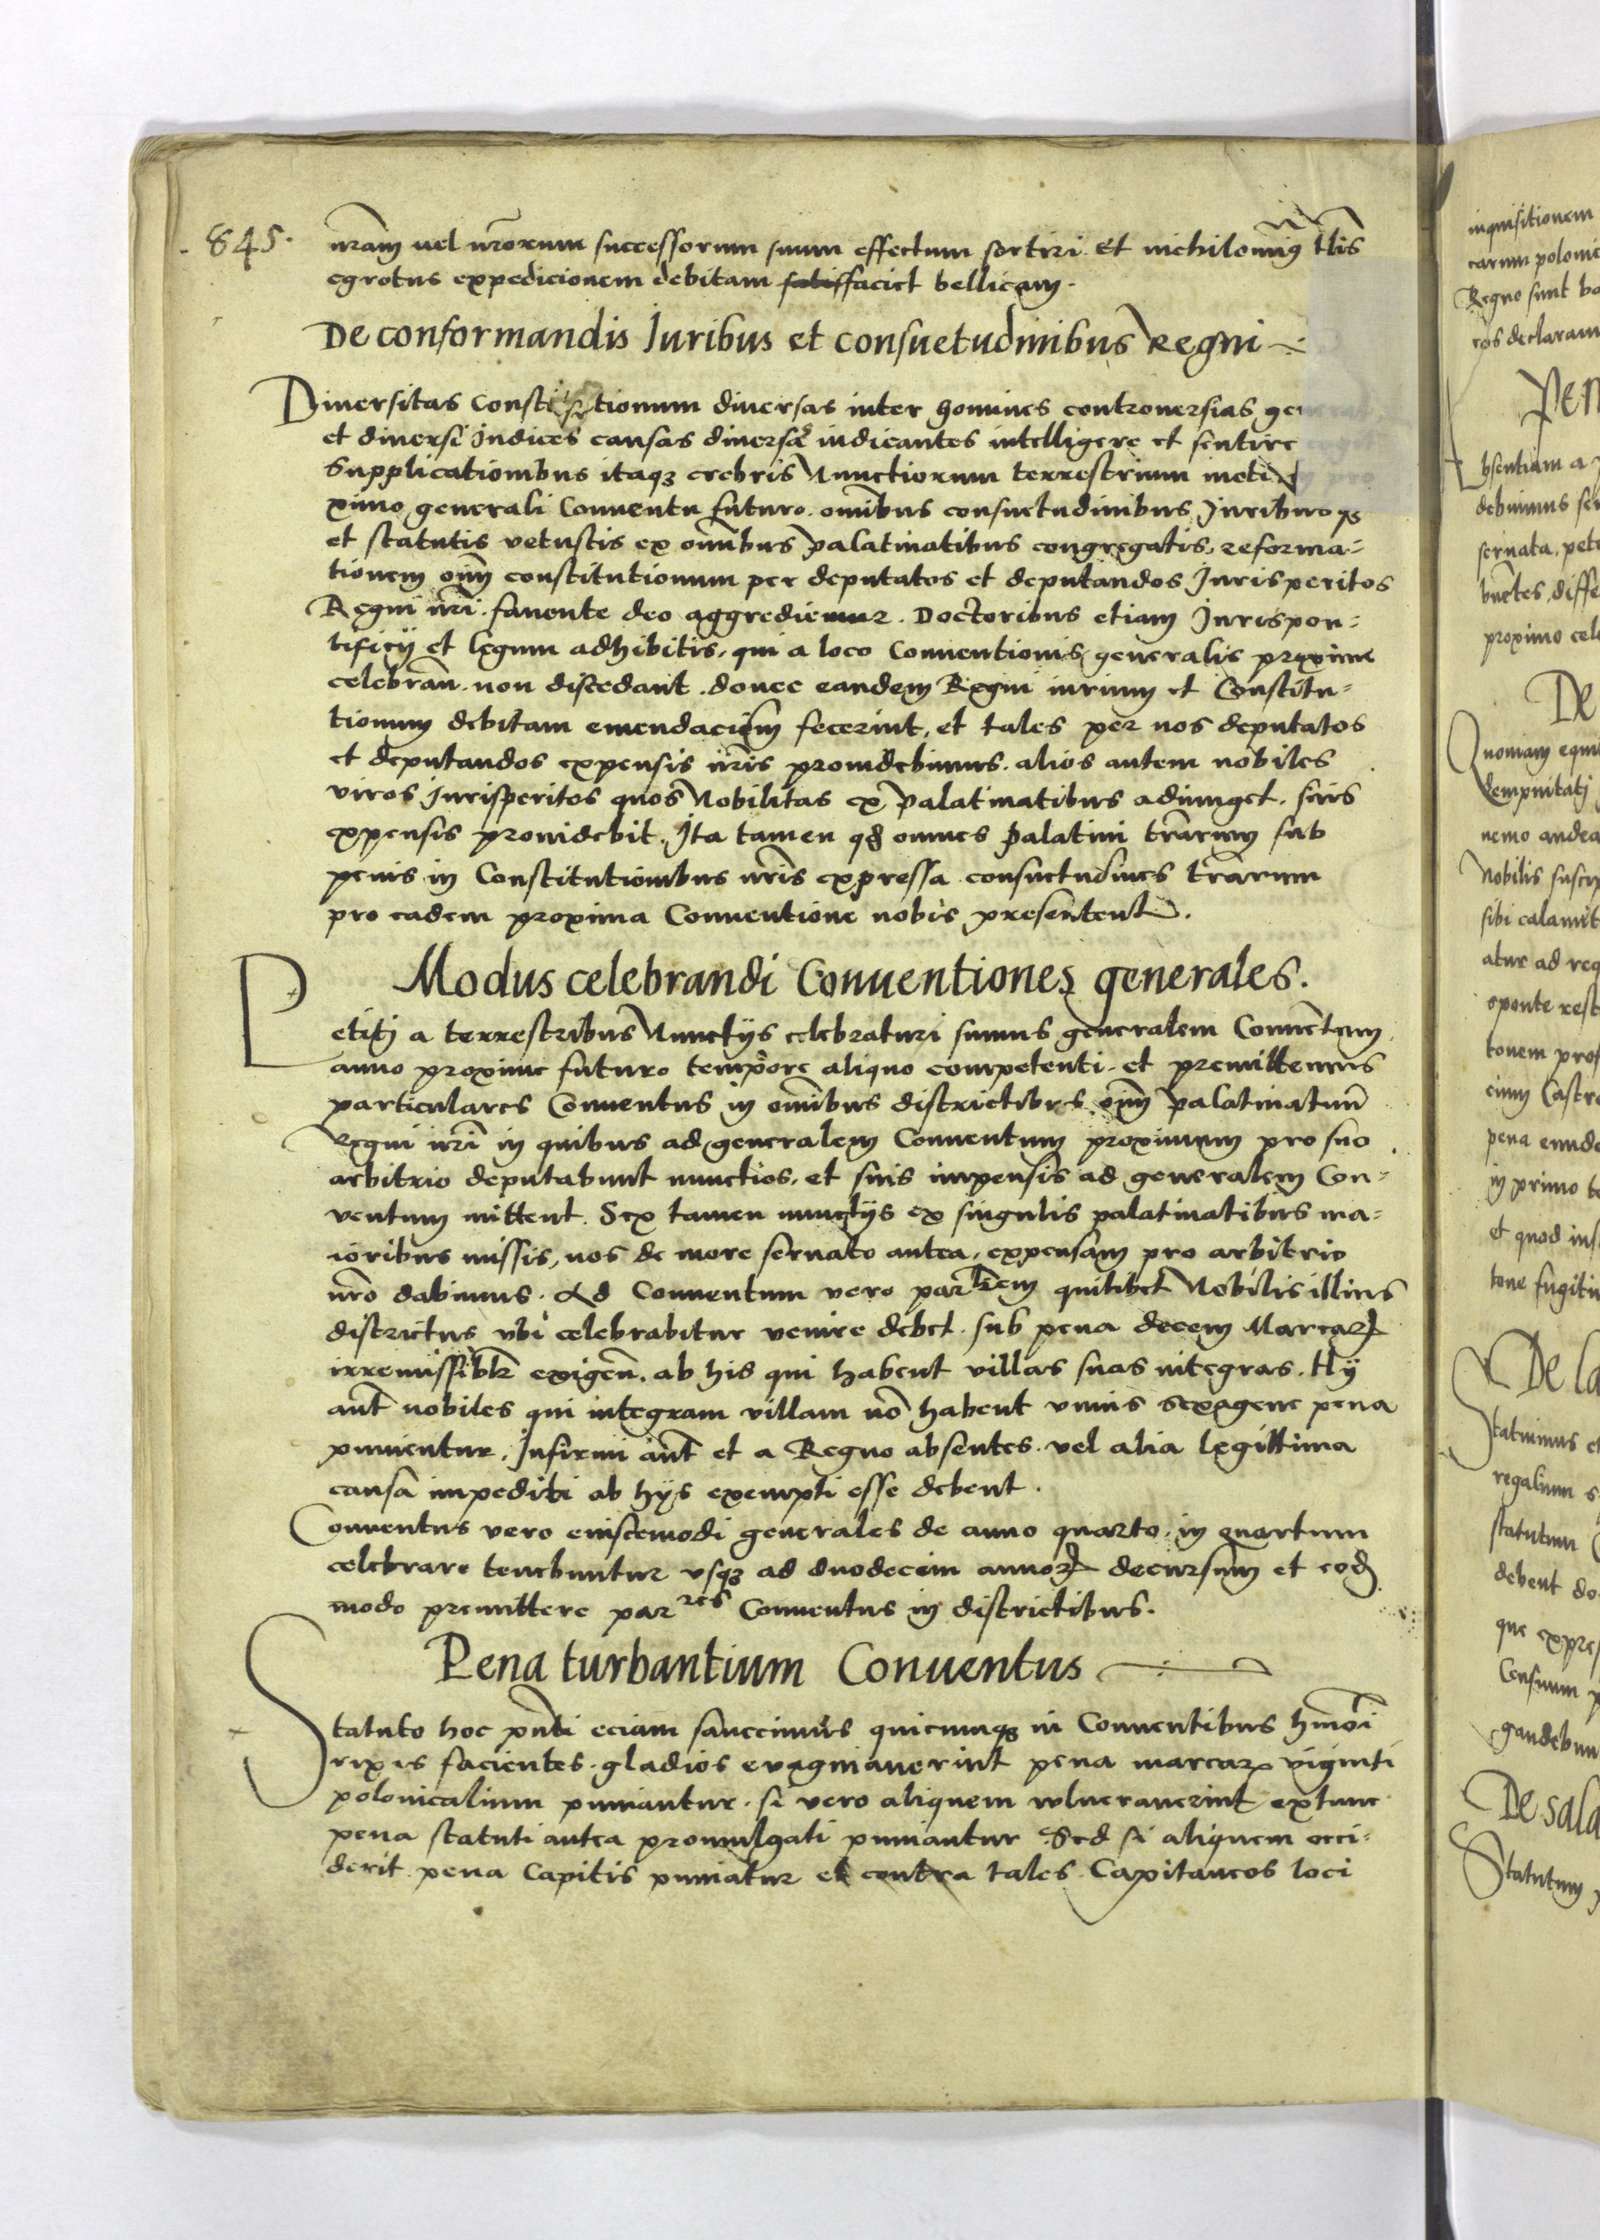 845.
nr̄am vel nr̄orum successorum suum effectum sortiri. Et nichilomīꝰ tl̄is
egrotus expedicionem debitam satisfaciet bellicam.
De conformandis Iuribus et consuetudinibus Regni
Diversitas Constitutionum diversas inter homines controversias
et diversi iudices causas diversa iudicantes intelligere et sentire
Supplicationibus itaqꝫ crebris Nunctiorum terrestrium moti pro
ximo generali Conventu futuro. om̄ibus consuetudinibus, Iuribusqꝫ
et statutis vetustis ex om̄ibus palatinatibus congregatis, reforma-
tionem oīm constitutionum per deputatos et deputandos Iurisperitos
Regni nr̄i. favente deo aggrediemur. Doctoribus etiam Iurispon-
tificij et legum adhibitis, qui a loco Conventionis generalis proxime
celebran̄. non discedant. donec eandem Regni iurium et Constitu-
tionum debitam emendaciōm fecerint, et tales per nos deputatos
et deputandos expensis nr̄is providebimus. alios autem nobiles
viros Iurisperitos quos Nobilitas ex palatinatibus adiunget. suis
expensis providebit. Ita tamen qđ omnes palatini tr̄arum sub
penis in Constitutionibus nr̄is expressa consuetudines tr̄arum
pro eadem proxima Conventione nobis presentent.
Modus celebrandi Conventiones generales.
Petitj a terrestribus Nunctijs celebraturi sumus generalem Conventum
anno proxime futuro tempore aliquo competenti. et premittemus
particulares Conventus in om̄ibus districtibus oīm palatinatuū
regni nr̄i in quibus ad generalem Conventum proximum pro suo
arbitrio deputabunt nunctios, et suis impensis ad generalem Con-
ventum mittent. Sex tamen nunctijs ex singulis palatinatibus ma-
ioribus missis, nos de more servato antea, expensam pro arbitrio
nr̄o dabimus. Ad Conventum vero par^lrem quilibet Nobilis illius
districtus ubi celebrabitur venire debet. sub pena decem Marcarꝝ
irremissibilr exigen̄. ab his qui habent villas suas integras. Hij
aūt nobiles qui integram villam nō habent unius sexagene pena
punientur. Infirmi aūt et a Regno absentes. vel alia legittima
causa impediti ab hijs exempti esse debent.
Conventus vero eiuscemodi generales de anno quarto. in quartum
celebrare tenebuntur usqꝫ ad duodecim annorꝝ decursum et eođ
modo premittere par^res Conventus in districtibus.
Pena turbantium Conventus
Statuto hoc pn̄ti eciam sanccimus quicumqꝫ in Conventibus hmōi
rixas facientes. gladios evaginaverint pena marcarꝝ viginti
polonicalium puniantur. si vero aliquem vulneraverint extunc
pena statuti antea promulgati puniantur Sed si aliquem occi-
derit pena Capitis puniatur et contra tales Capitaneos loci
inquisitionem
Regno sunt
Pen
bsentiam a
proximo cel
De
Quoniam
nemo audea
sibi calamit
atur ad req
pena
in primo
et quod
De la
Statuimus et
regalium
statutum
debent
que
Censuum
De sala
Statutum